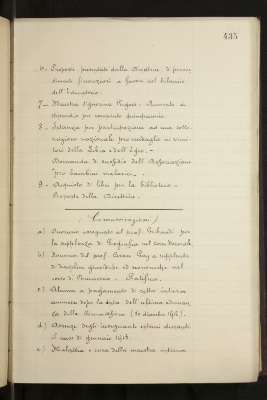 435
6. Proposte presentate dalla Direttrice, di provve-
dimenti finanziari a favore del bilancio
dell'Educatorio.
7 - Maestra Signorina Aumento di
stipendio per compiuto quinquennio.
8. Istanza per partecipazione ad una sotto-
scrizione nazionale pro medaglia ai vinci-
tori della Libia e dell'Egeo. -
Domanda di sussidio dell'Associazione
"pro bambini malarici". -
9 - Acquisto di libri per la biblioteca -
Proposte della Direttrice.
(Comunicazioni)
a) Onorario assegnato al prof. per
la supplenza di Geografia nel corso Normale.
b) Nomina del prof. Cesare a supplente
di discipline giuridiche ed economiche nel
corso di Commercio - Ratifica.
c) Alunne a pagamento di retta intiera
ammesse dopo la data dell'ultima adunan-
za della Commissione (20 dicembre 1912).
d) Assenze degli insegnanti esterni durante
il mese di gennaio 1913.
e) Malattia e cura della maestra interna